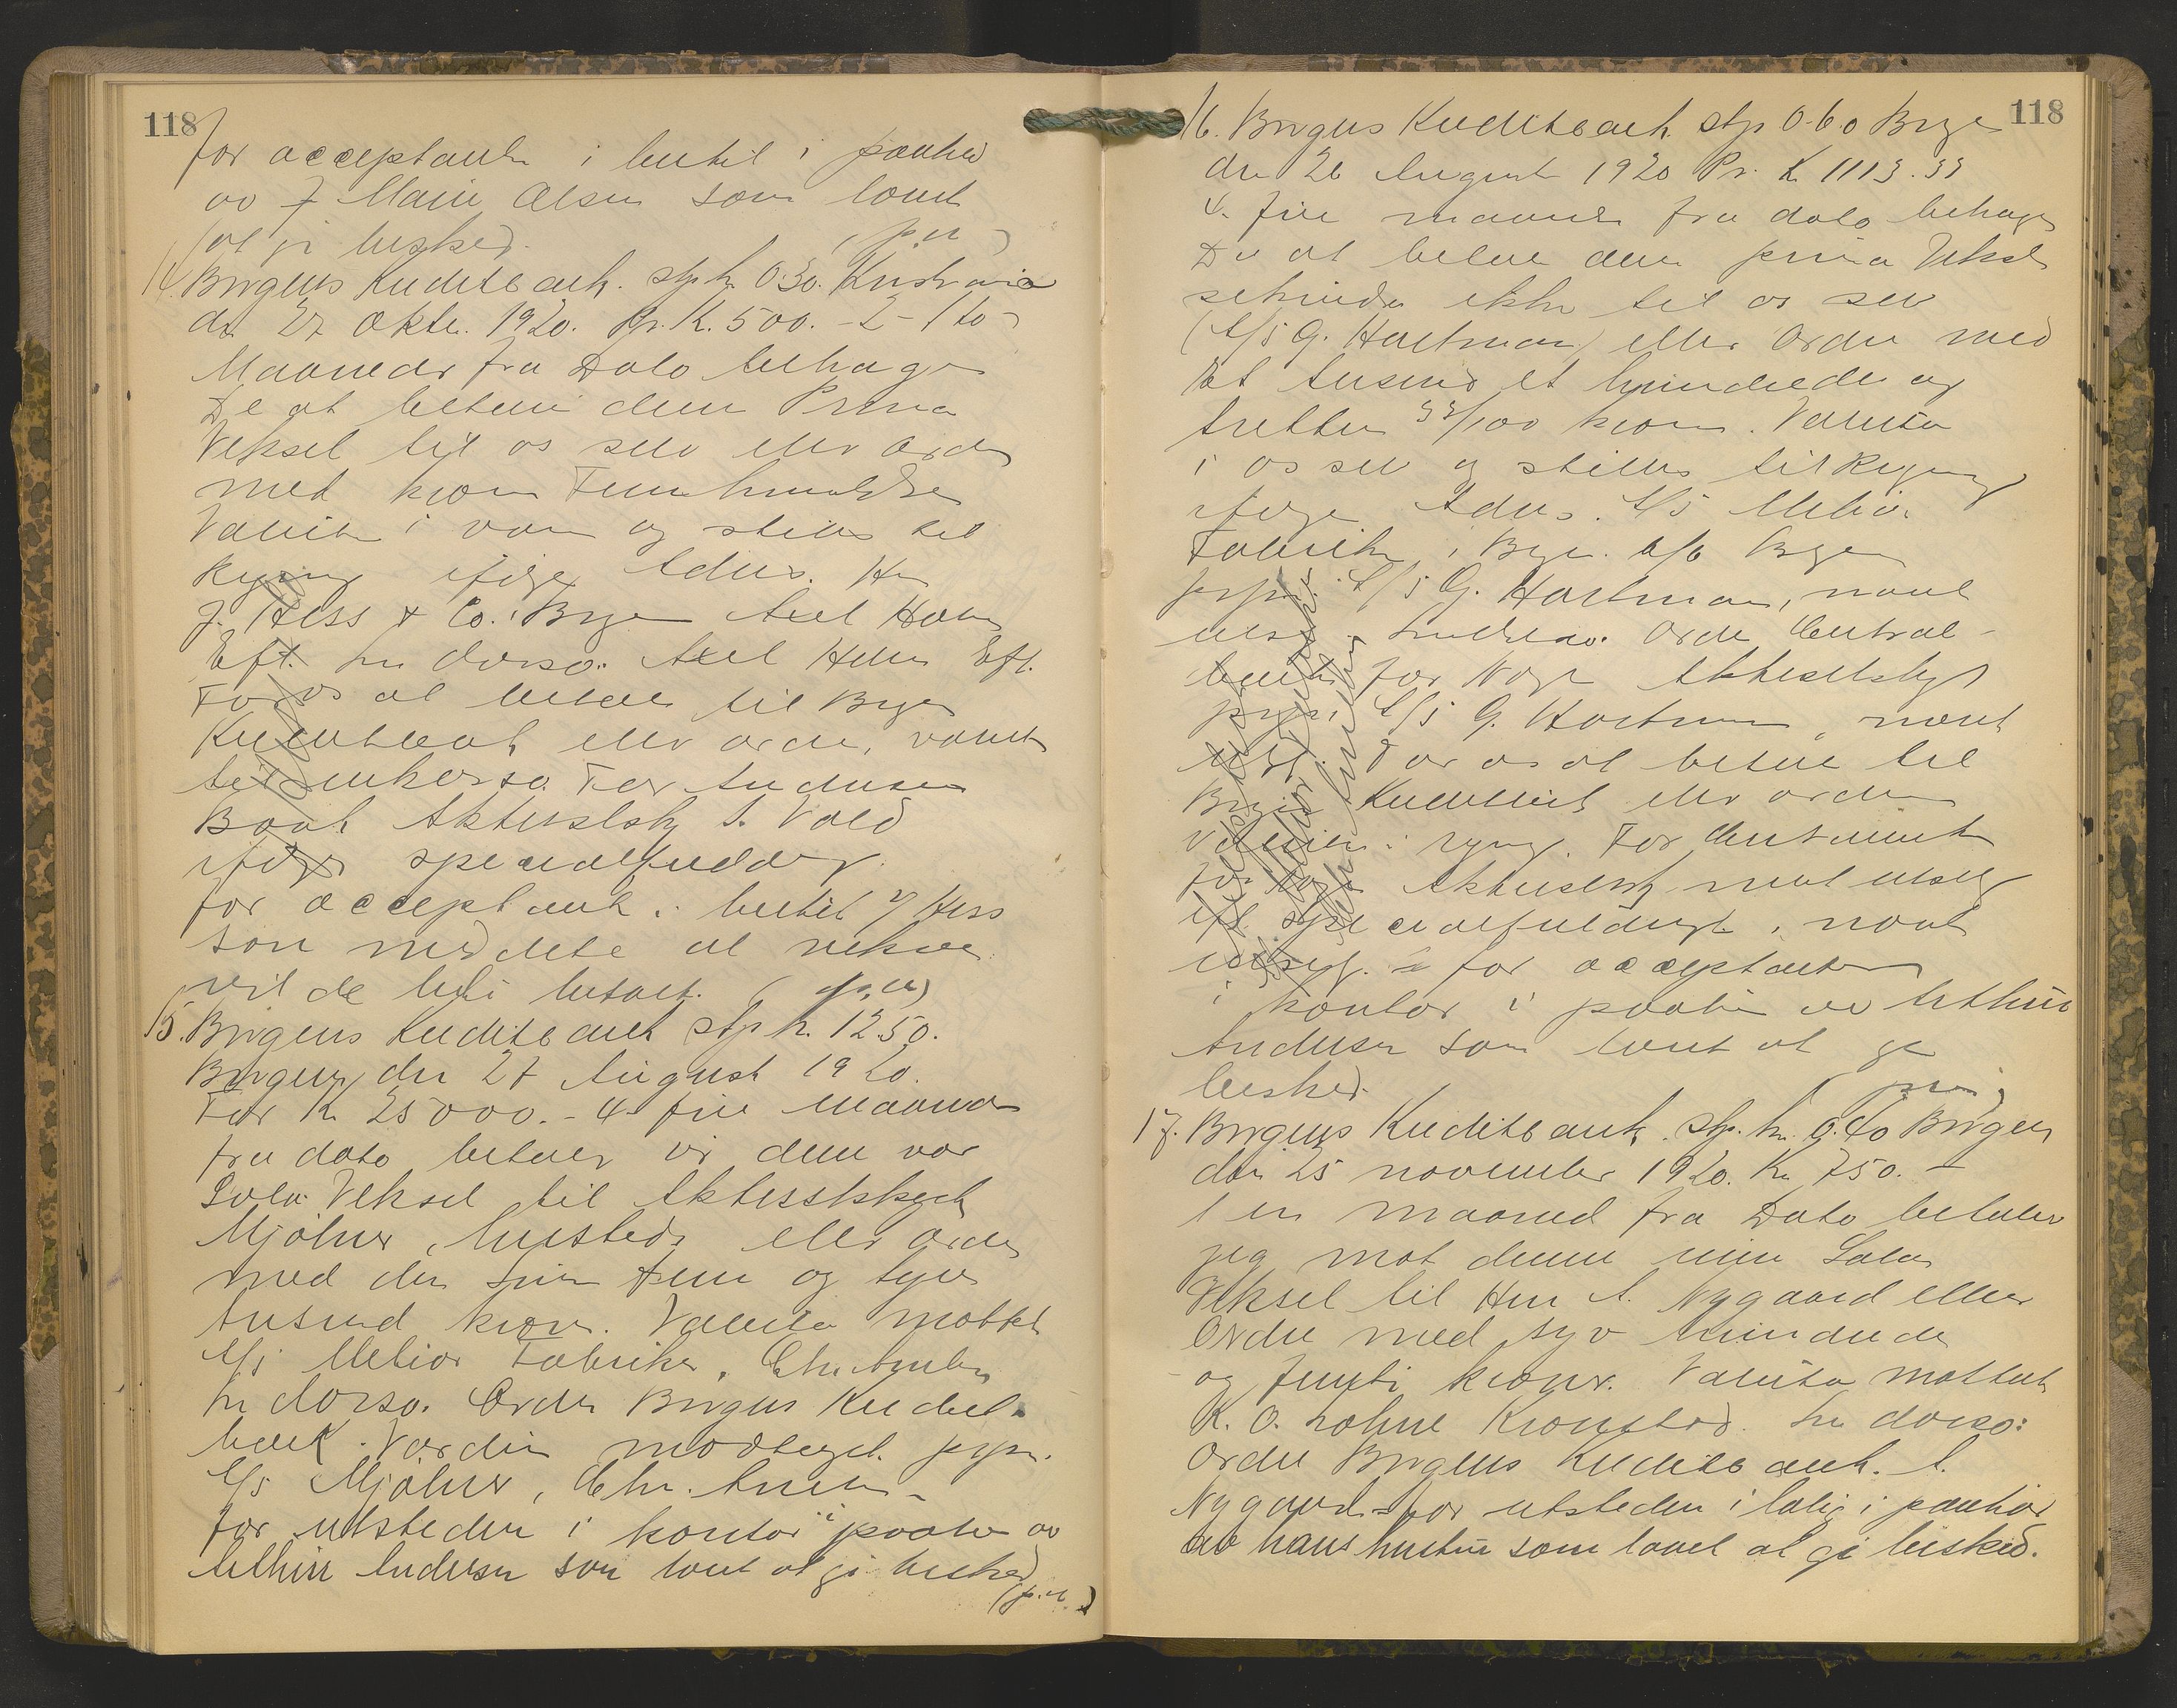 118
for acceptanten i butik i paahør
av Marie Olsen som lovet
at gi besked. (p.n)
14. Bergens Kreditbank. stp. kr. 0.30. Kristiania
den 27 Oktbr. 1920. Pr. K. 500. - 2 - to
Maaneder fra Dato behager
De at betale denne Prima
Veksel til os selv eller ordre
med kroner Fem hundrede
Valuta i og stilles til
Regning ifølge Advis. Hrr
J. Hess & Co. Bergen Axel Holm
Eft. In dorso. Axel Holm Eft.
For os at betale til Bergens
Kreditbank eller ordre, valuta
til inkasso. For Andresens
Bank Aktieselskp
ifølge specialfuldmagt.
for acceptanten i butik Hess
som meddelte at vekselen
vil de bli betalt. (p.n)
15. Bergens Kreditbank stp. k. 12.50.
Bergen, den 27 August 1920.
For Kr 25000. - 4 fire Maaneder
fra dato betaler vi denne vor
Sola Veksel til Aktieselskapet
Mjølner, hersteds eller ordre
med den Sum fem og tyve
tusend kroner. Valuta mottat
A/S Melior Fabriker. Chr.
In dorso. Ordre Bergens Kredit-
bank. Værdien modtaget. pr.pr.
A/S Mjølner, Chr.
for utstederen i kontor i paahør av
Arthur Andersen som lovet at gi besked
(p.n.)
118
16. Bergens Kreditbank stp 0.60 Bergen
den 26 August 1920 Pr. K 1113.33
4. fire maaneder fra dato behager
De at betale denne prima Veksel
sekunda ikke til os selv
(A/S G. Hartman) eller Ordre med
Et tusend et hundrede og
tretten 33/100 kroner. Valuta
i os selv og stilles til Regning
ifølge Advis. A/S Melior
Fabriker, i Bergen. Bergen
pr.pr. A/S G. Hartman, navnet
ulæs. Indorso. Ordre Central-
banken for Norge Aktieselskap
pr.pr. A/S G. Hartman, navnet
For os at betale til
Bergens Kreditbank eller ordre
Valuta i regning. For Centralbanken
for Norge Aktieselskap navnet ulæselig
ifl. specialfuldmagt, navnet
ulæselig. for acceptanten
i kontor i paahør av Arthur
Andersen som lovet at gi
besked. (p.n)
17. Bergens Kreditbank. stp. kr. 0.40 Bergen
den 25 november 1920. Kr 750. -
1 en maaned fra Dato betaler
jeg mot denne min Sola
Veksel til Herr A. Nygaard eller
Ordre med syv hundrede
og femti kroner. Valuta mottat
K. O. Lohne Kronstad. In dorso:
Ordre Bergens Kreditbank. A.
Nygaard. for utstederen i bolig i paahør
av hans hustru som lovet at gi besked.